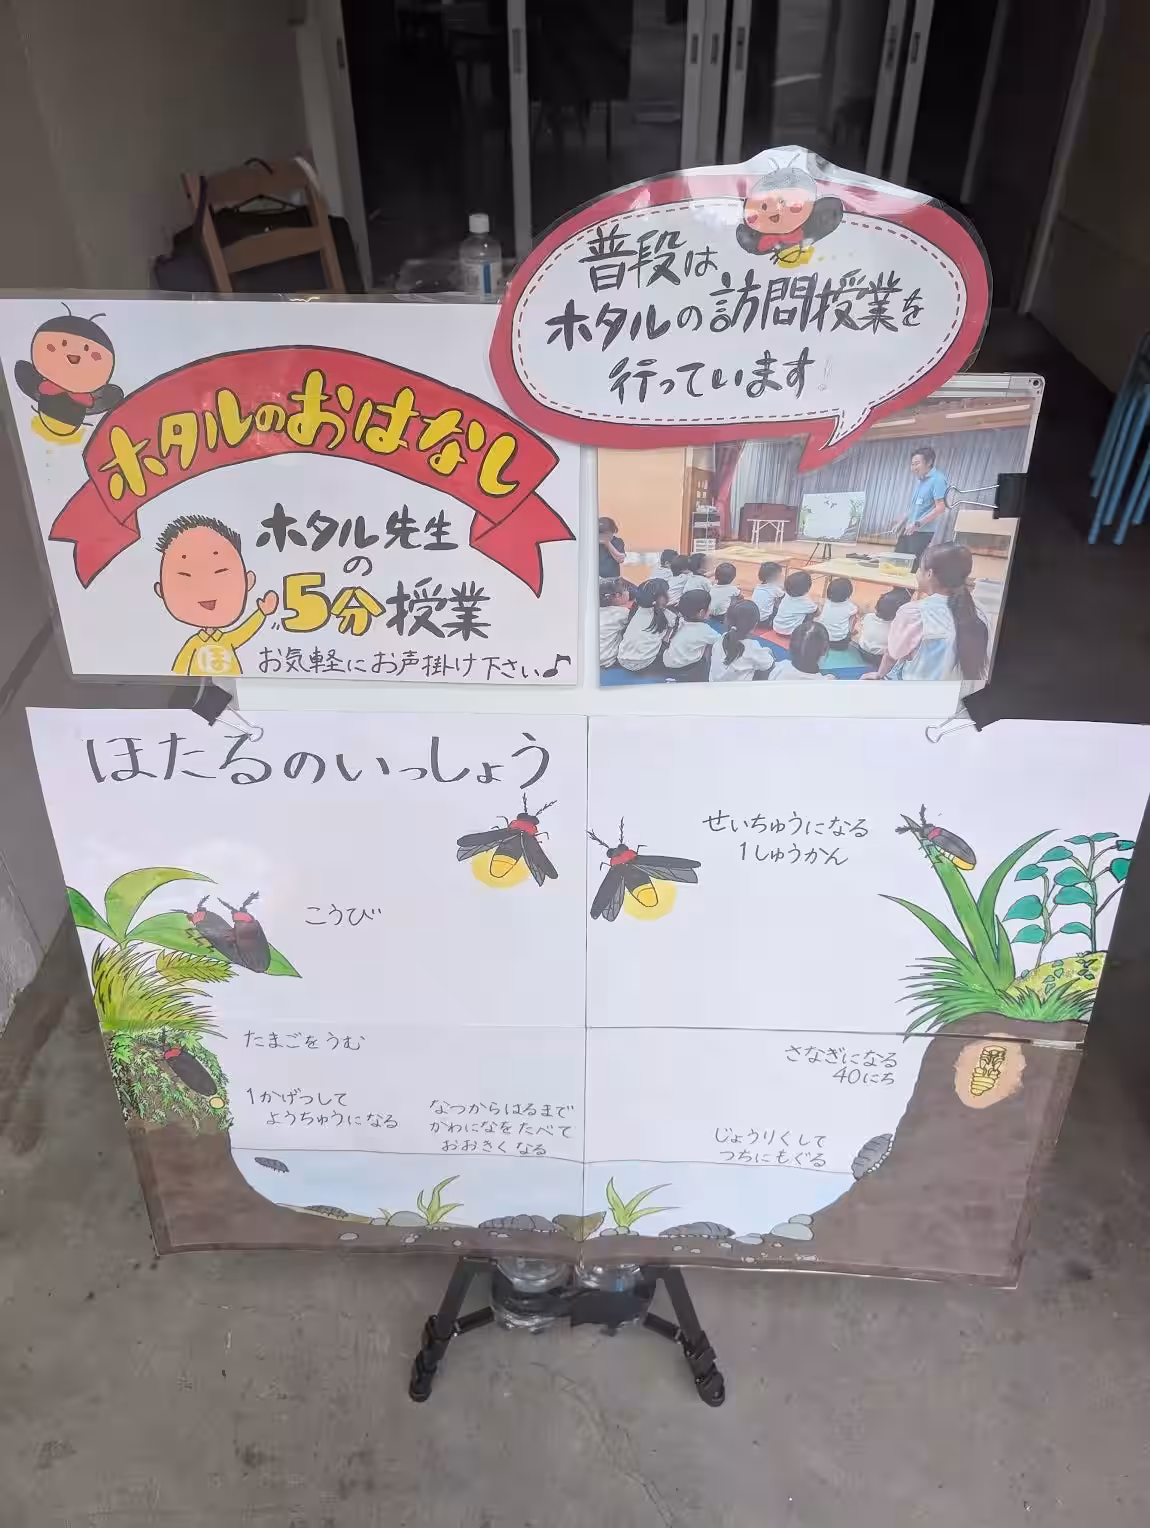 普段は
ホタルの訪問授業を
行っています!
ホタルのおはなし
ホタル先生
の
5分授業
お気軽にお声掛け下さい♪
ほ
ほたるのいっしょう
せいちゅうになる
1しゅうかん
こうび
たまごをうむ
1かげつして
ようちゅうになる
なつからはるまで
かわになをたべて
おおきくなる
さなぎになる
40にち
じょうりくして
つちにもぐる